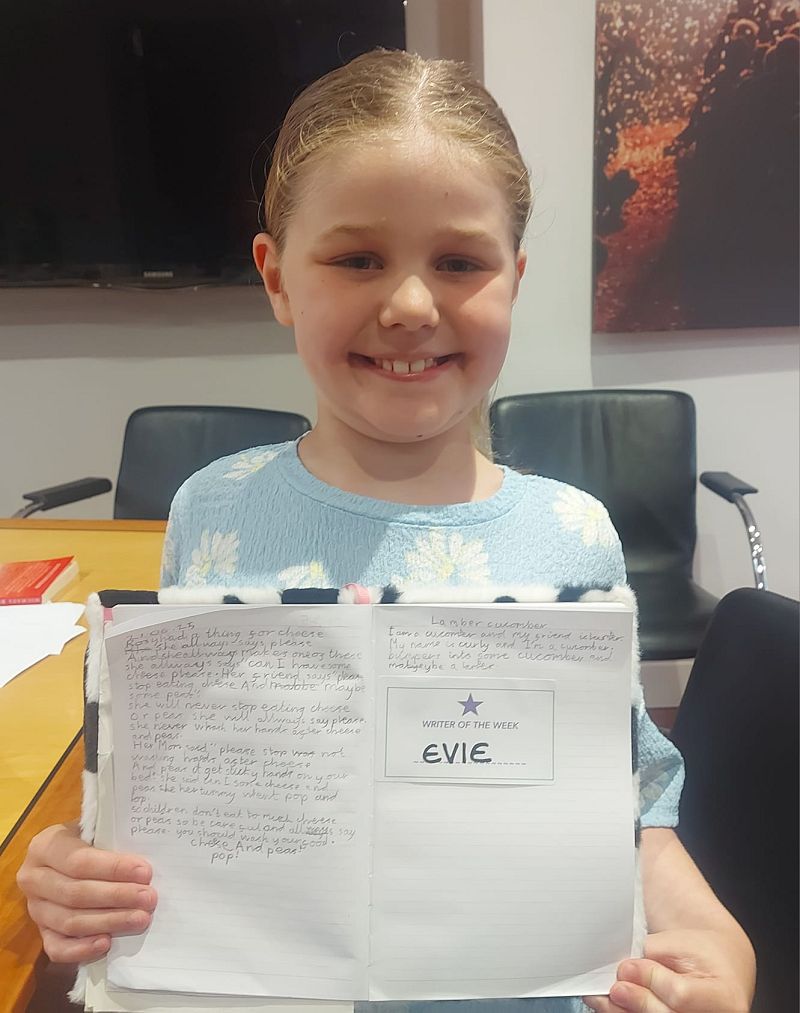 SAMSUNG
21.06.25
had A thing gor cheese
she allways says please
And she allways makes one of these
she allways says "can I have some
cheese please. Her griend says" please
stop eating cheese And maybe
some peas.
she will never stop eating cheese
or peas she will allways say please.
she never whash her hands aster cheese
and peas.
Her Mom said" please stop was not
washing hands aster pheese
And peas it get dusty hands on your
bed". she sed can I some cheese and
peas she her tummy went pop and
bop.
so children don't eat to much cheese
or peas so be caregul and always say
please. you should wash your good.
chesse And peas!
pop!
Lamber cucomber
I am a cucomber and my friend is
My name is curly and I'm a cucomber.
into some cucomber and
a later.
WRITER OF THE WEEK
EVIE